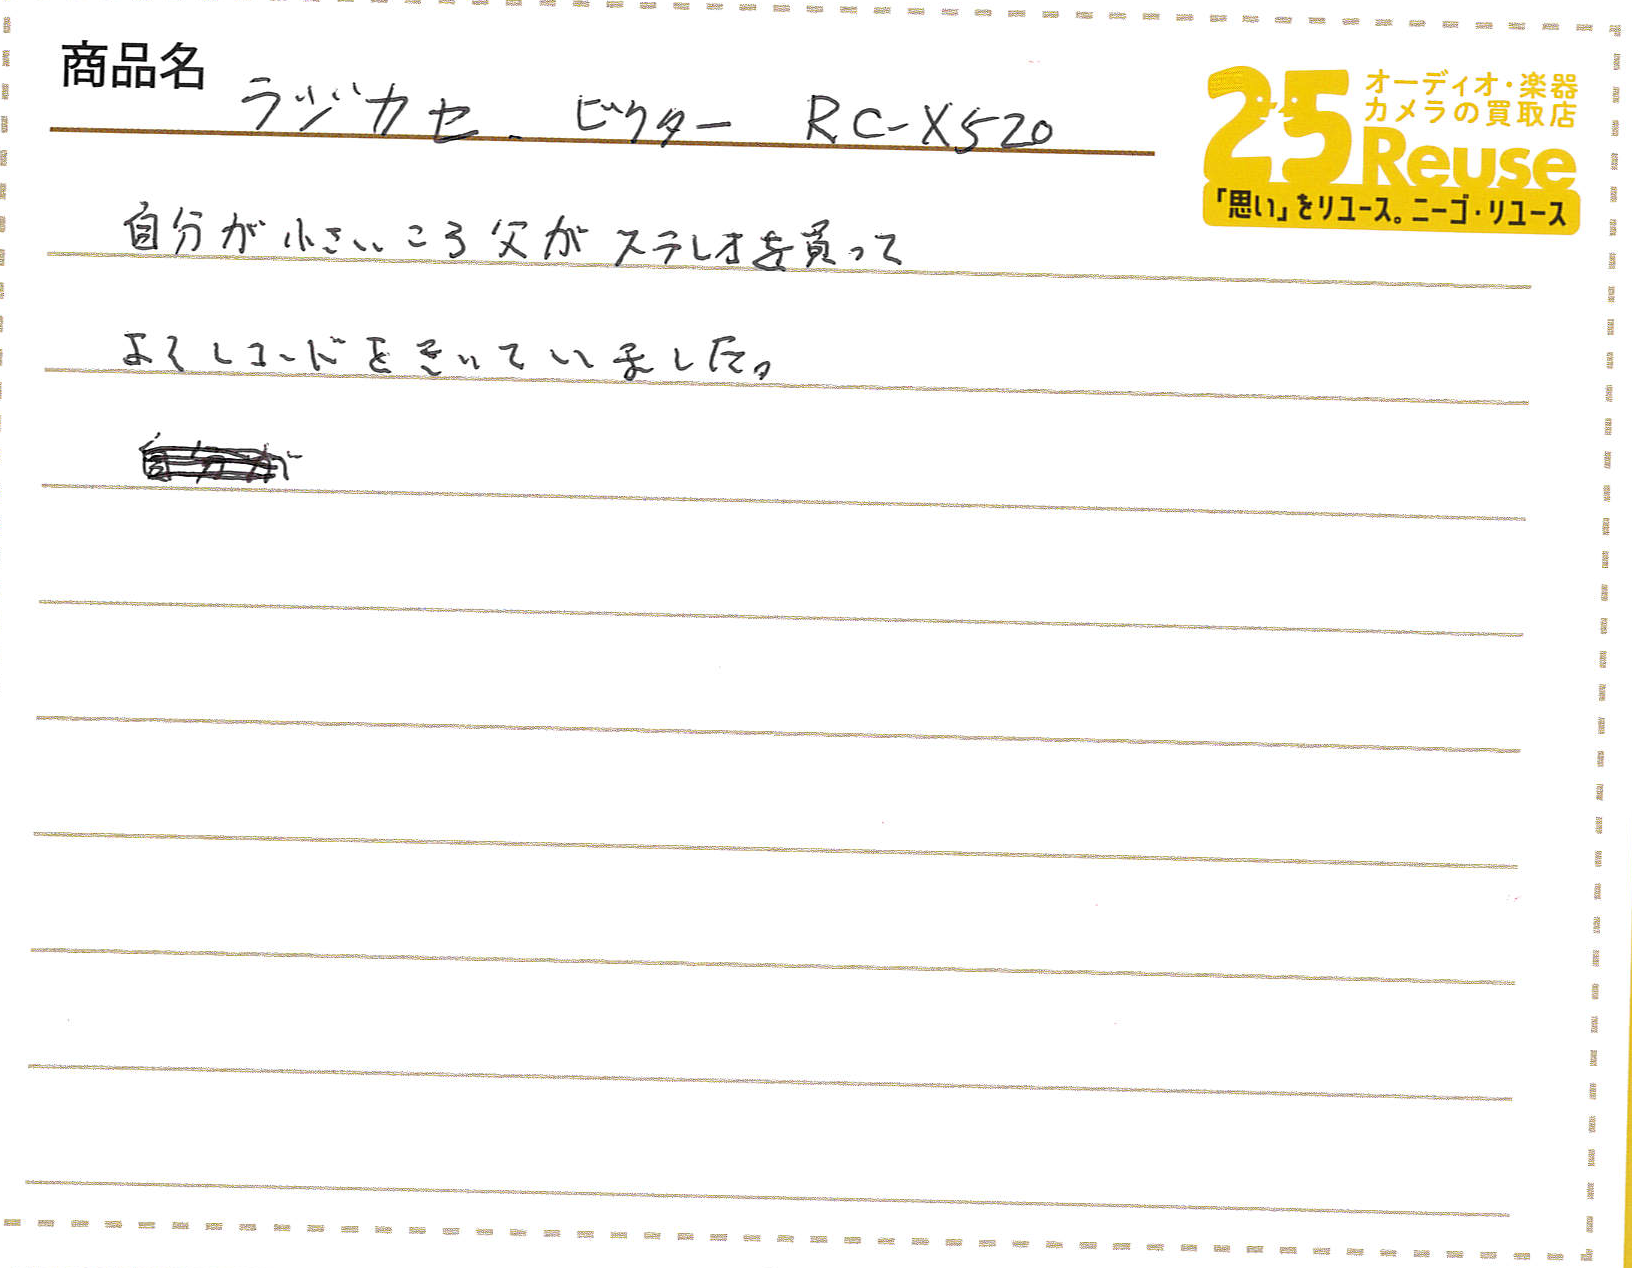 商品名 ラジカセ. ビクター RC-X520
オーディオ・楽器
カメラの買取店
25 Reuse
「思い」をリユース。ニーゴ・リユース
自分が小さいころ父がステレオを買って
よくレコードをきいていました。